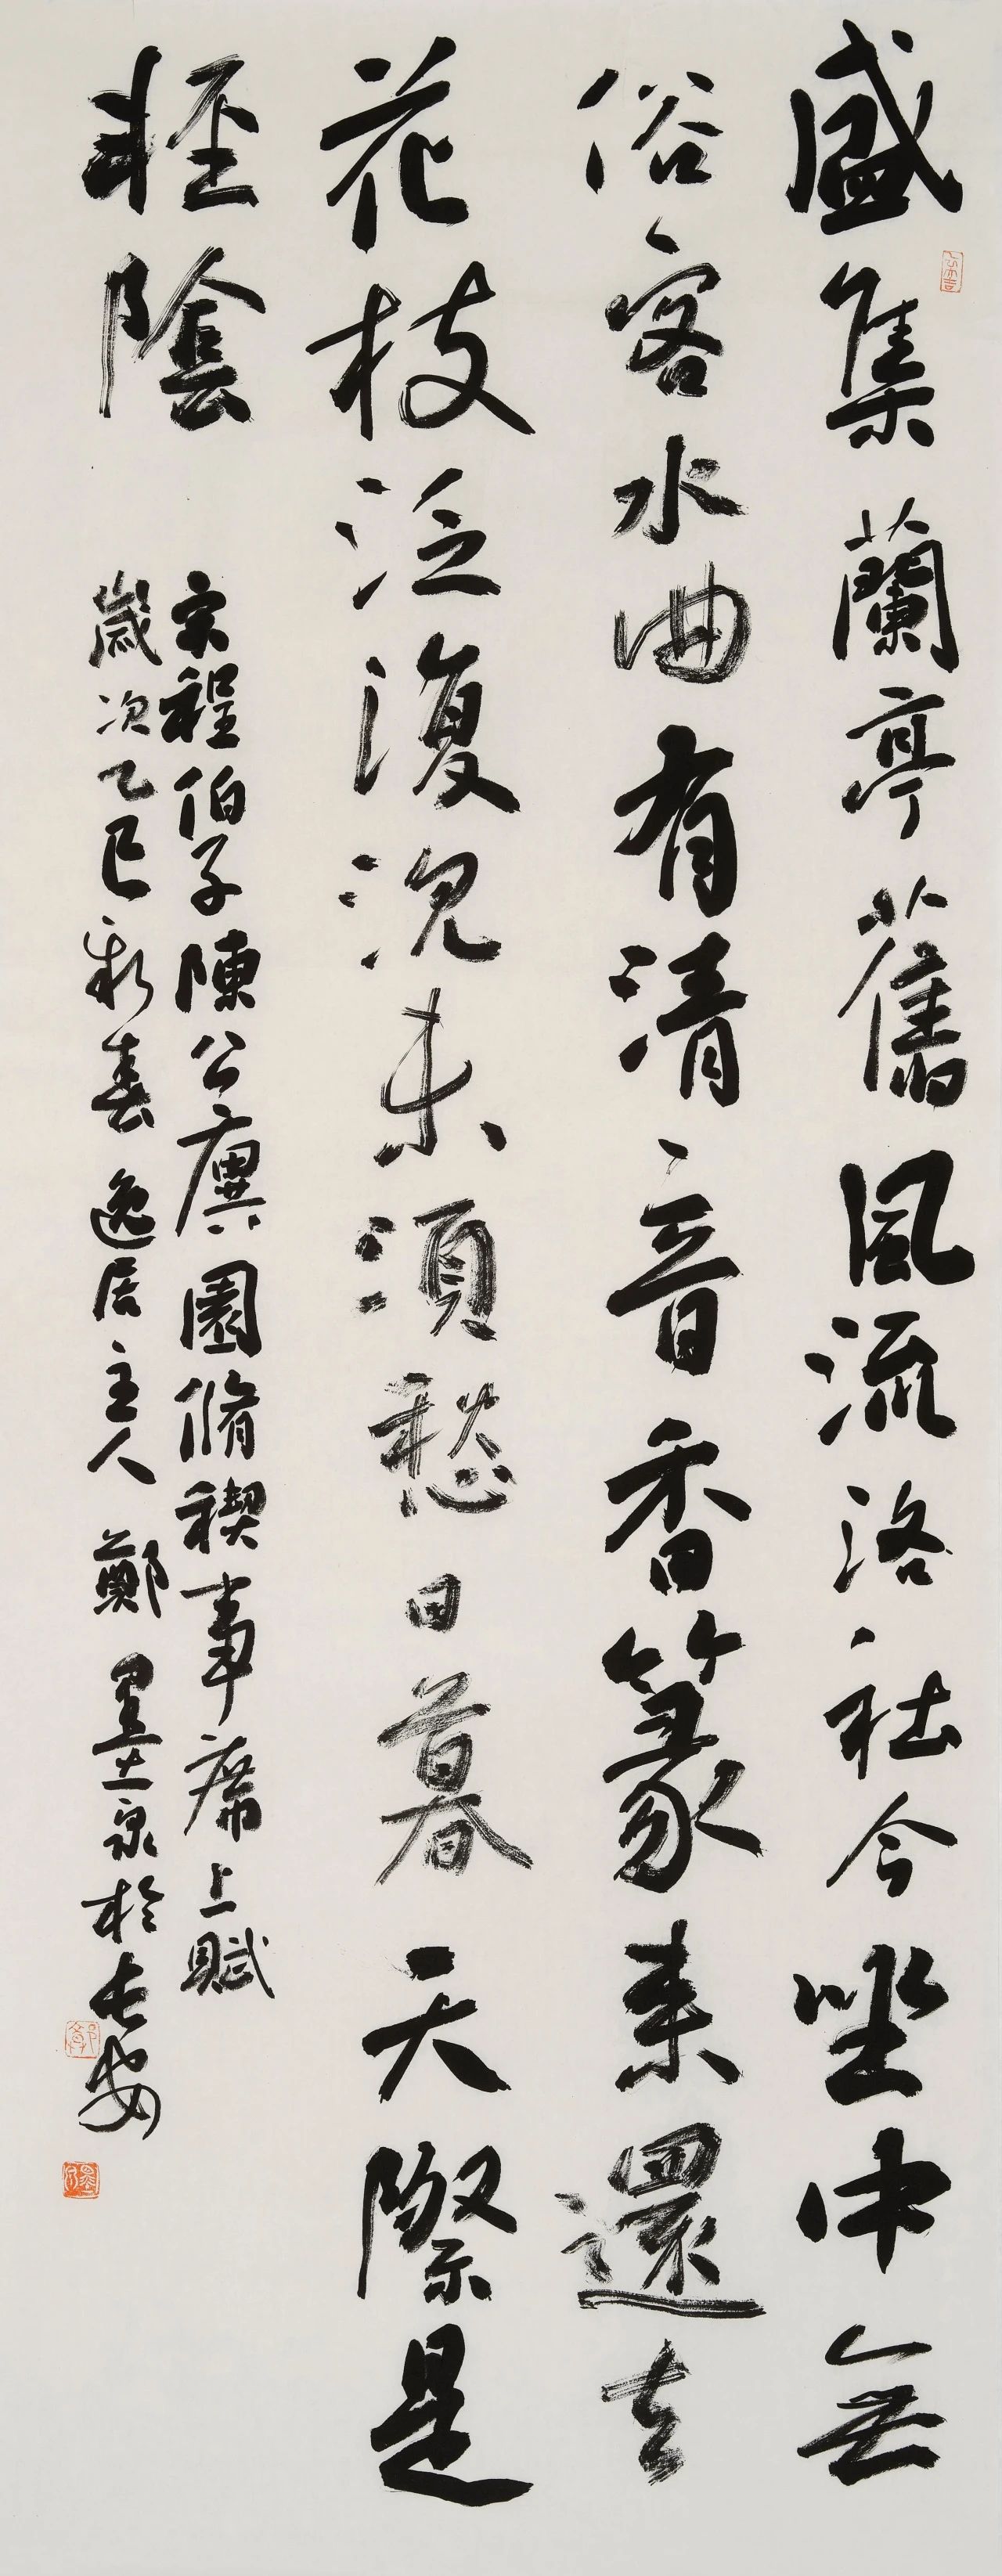 盛集蘭亭舊風流洛社今坐中無
俗客水曲有清音香篆来還去
花枝泛復沉未須愁日暮天際是
輕陰
宋程伯子陳公廙園脩禊事席上賦
歲次乙巳新春逸居主人鄭墨泉於长安